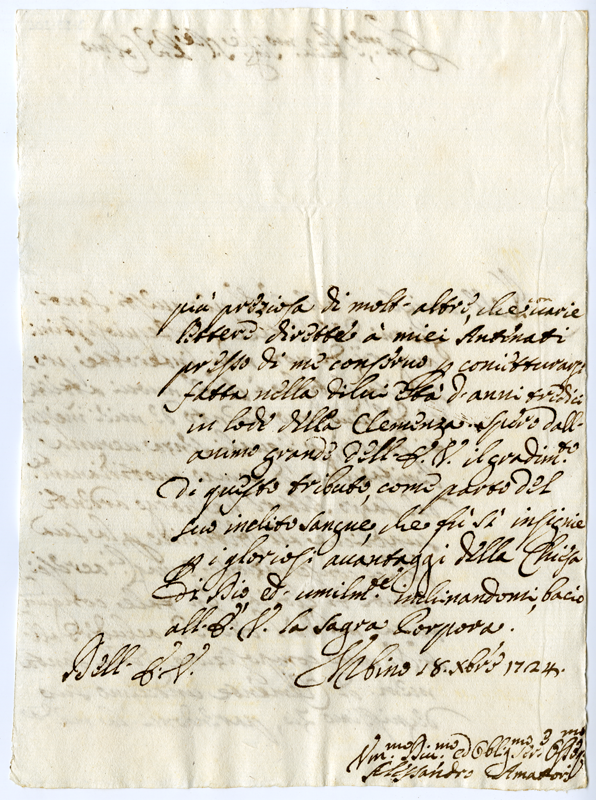 più preziosa di molt-altre, che varie
lettere dirette à miei Antenati
presso di me conservo, p
fatta nella di lui età d'anni tredici
in lode della Clemenza. Spero dall-
animo grande dell-E. V. il gradimto
di questo tributo, come parto del
suo inclito sangue, che fù sì insigne
p i gloriosi avantaggi della Chiesa
di Dio ed umilmte inclinandomi, bacio
all-E. V. la sagra Porpora.
Dell-E. V. Urbino 18. Xbre 1724.
Vmmo Divmo ed Oblgmo
Alessandro Amatori